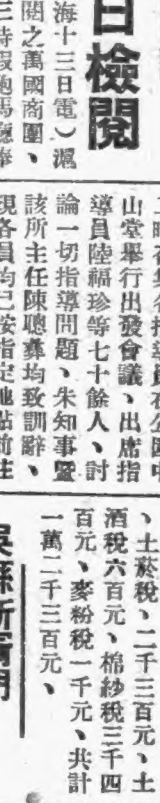 日檢閱
海十三日電︶滬
閱之萬國商團、
山堂舉行出發會議、出席指
導員陸福珍等七十餘人、討
論一切指導問題、朱知事暨
該所主任陳聰彝均致訓辭、
現各員均已按指定地點前往
、土菸稅、二千三百元、土
酒稅六百元、棉紗稅三千四
百元、麥粉稅一千元、共計
一萬二千三百元、